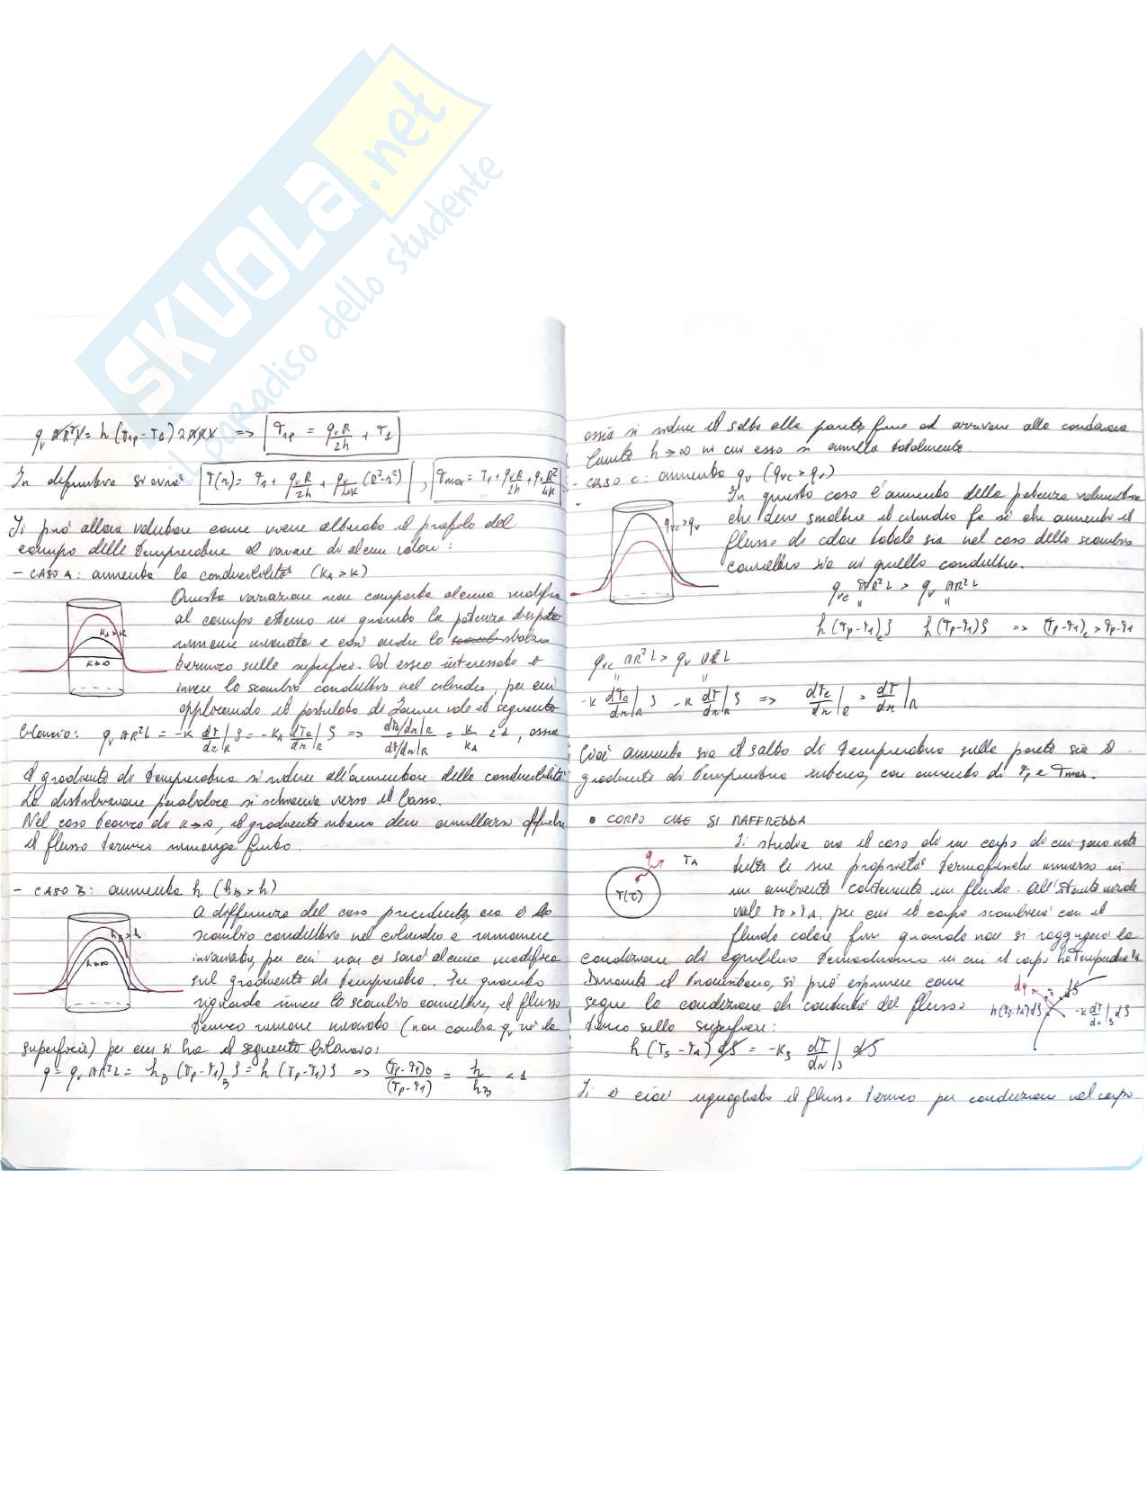 SKUOLA.net
il paradiso dello studente
q_v πR²L = h (T_1p - T_1) 2πRL => T_1p = q_v R / 2h + T_1
In definitiva si avrà T(r) = T_1 + q_v R / 2h + q_v / 4k (R²-r²) , T_max = T_1 + q_v R / 2h + q_v R² / 4k
Si può allora valutare come viene alterato il profilo del
campo delle temperature al variare di alcuni valori:
- CASO A: aumenta la conducibilità (k_A > k)
Questa variazione non comporta alcuna modifica
al campo esterno in quanto la potenza
rimane invariata e così anche lo sbalzo
termico sulla superficie. Ad essere interessato è
invece lo scambio conduttivo nel cilindro, per cui
applicando il postulato di Fourier vale il seguente
k_A > k
k→∞
bilancio: q_v πR²L = -k dT/dr|_R S = -k_A dT_A/dr|_R S => dT_A/dr|_R / dT/dr|_R = k / k_A < 1, ossia
il gradiente di temperatura si riduce all'aumentare della conducibilità
La distribuzione parabolica si schiaccia verso il basso.
Nel caso teorico di k→∞, il gradiente interno deve annullarsi affinché
il flusso termico rimanga finito.
- CASO B: aumenta h (h_B > h)
A differenza del caso precedente, ora è lo
scambio conduttivo nel cilindro a rimanere
invariato, per cui non ci sarà alcuna modifica
sul gradiente di temperatura. Per quanto
riguarda invece lo scambio convettivo, il flusso
termico rimane invariato (non cambia q_v né la
h_B > h
h→∞
superficie) per cui si ha il seguente bilancio:
q = q_v πR²L = h_B (T_p - T_1)_B S = h (T_p - T_1) S => (T_p - T_1)_B / (T_p - T_1) = h / h_B < 1
ossia si riduce il salto alla parete fino ad arrivare alla condizione
limite h→∞ in cui esso si annulla totalmente.
- CASO C: aumenta q_v (q_vc > q_v)
In questo caso l'aumento della potenza volumetrica
che deve smaltire il cilindro fa sì che aumenti il
flusso di calore totale sia nel caso dello scambio
convettivo sia in quello conduttivo.
q_vc > q_v
q_vc πR²L > q_v πR²L
h (T_p - T_1)_c S h (T_p - T_1) S => (T_p - T_1)_c > T_p - T_1
q_vc πR²L > q_v πR²L
-k dT_c/dr|_R S -k dT/dr|_R S => dT_c/dr|_R > dT/dr|_R
Cioè aumenta sia il salto di temperatura sulla parete sia il
gradiente di temperatura interno, con aumento di T_p e T_max.
• CORPO CHE SI RAFFREDDA
Si studia ora il caso di un corpo di cui sono note
tutte le sue proprietà termofisiche immerso in
un ambiente contenente un fluido. All'istante iniziale
vale T_0 > T_A, per cui il corpo scambierà con il
fluido calore fin quando non si raggiunge la
q
T_A
T(τ)
condizione di equilibrio termodinamico in cui il corpo ha temperatura T_A
Durante il transitorio, si può esprimere come
segue la condizione di continuità del flusso
termico sulla superficie:
dq
dS
h(T_S - T_A) dS
-k dT/dn|_S dS
h (T_S - T_A) dS = -k_S dT/dn|_S dS
Si è cioè uguagliato il flusso termico per conduzione nel corpo